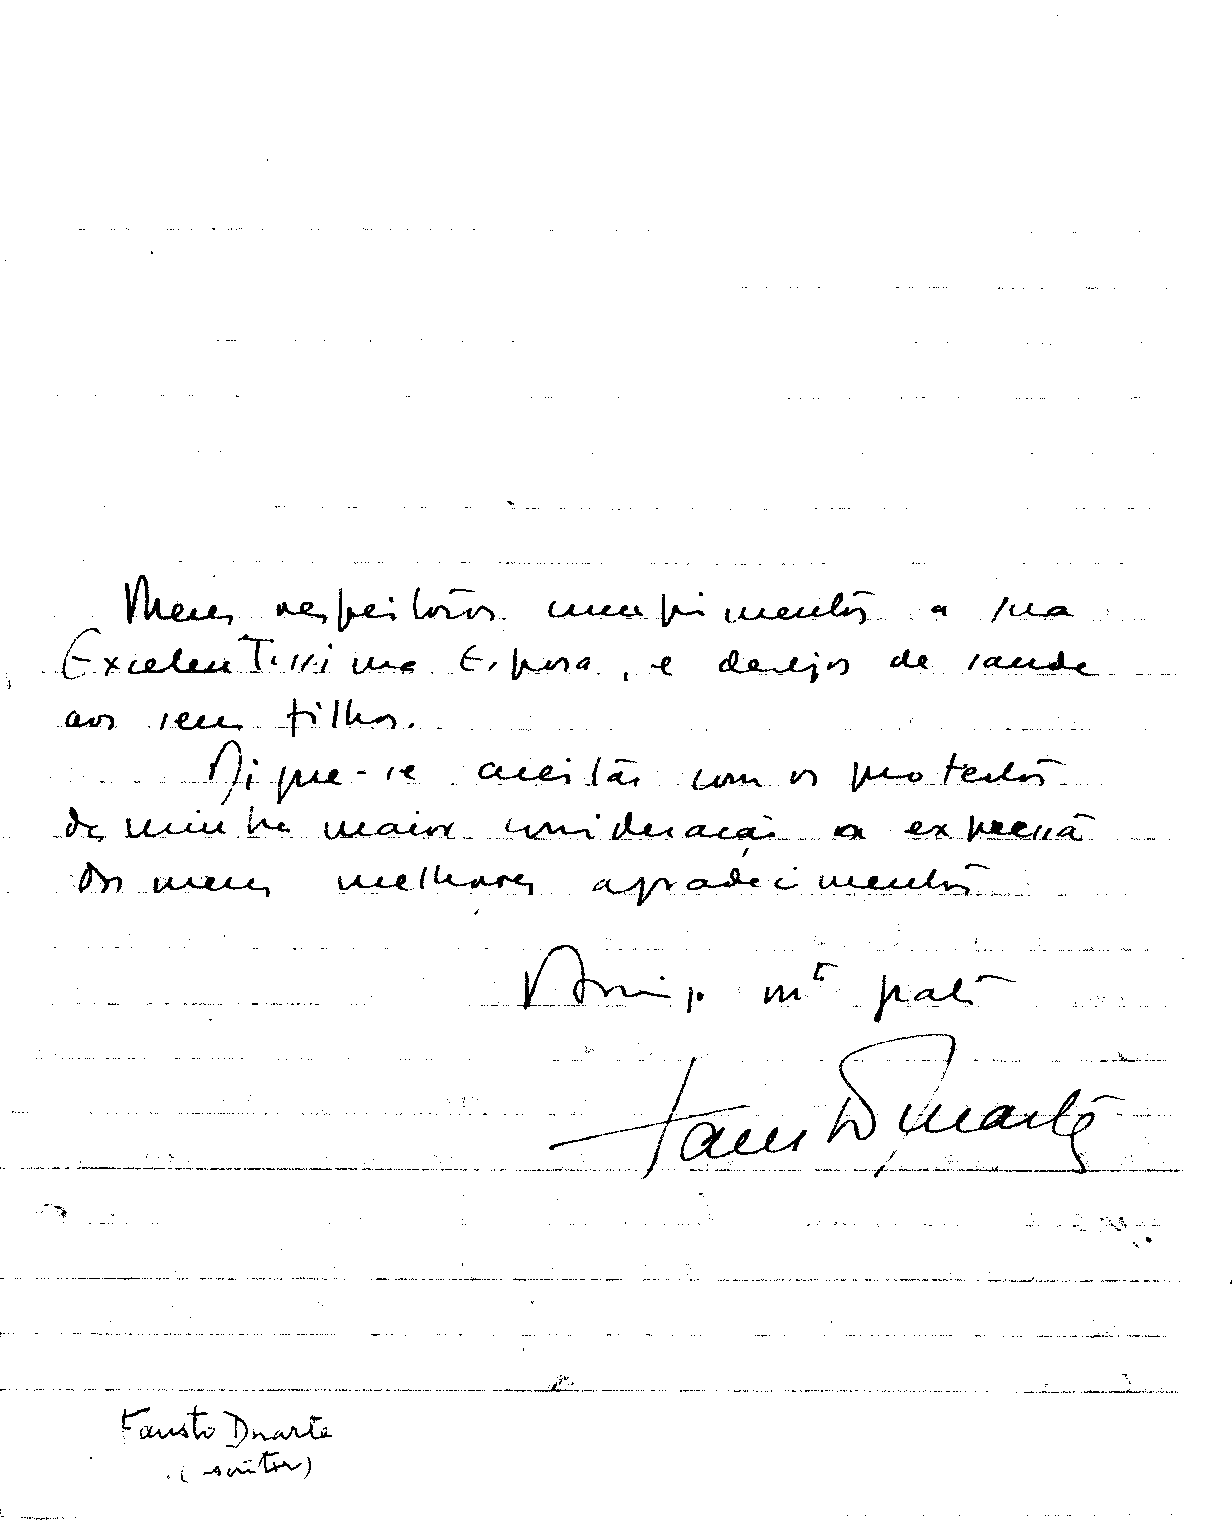 Meus respeitosos cumprimentos a sua
Excelentissima Esposa, e desejos de saude
aos seus filhos.
Digne-se aceitar com os protestos
da minha maior consideração a expressã
dos meus melhores agradecimentos
Amigo mt grato
Fausto Duarte
Fausto Duarte
(escritor)